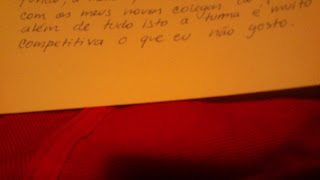 com os meus novos colegas
além de tudo isto a turma é muito
competitiva o que eu não gosto.